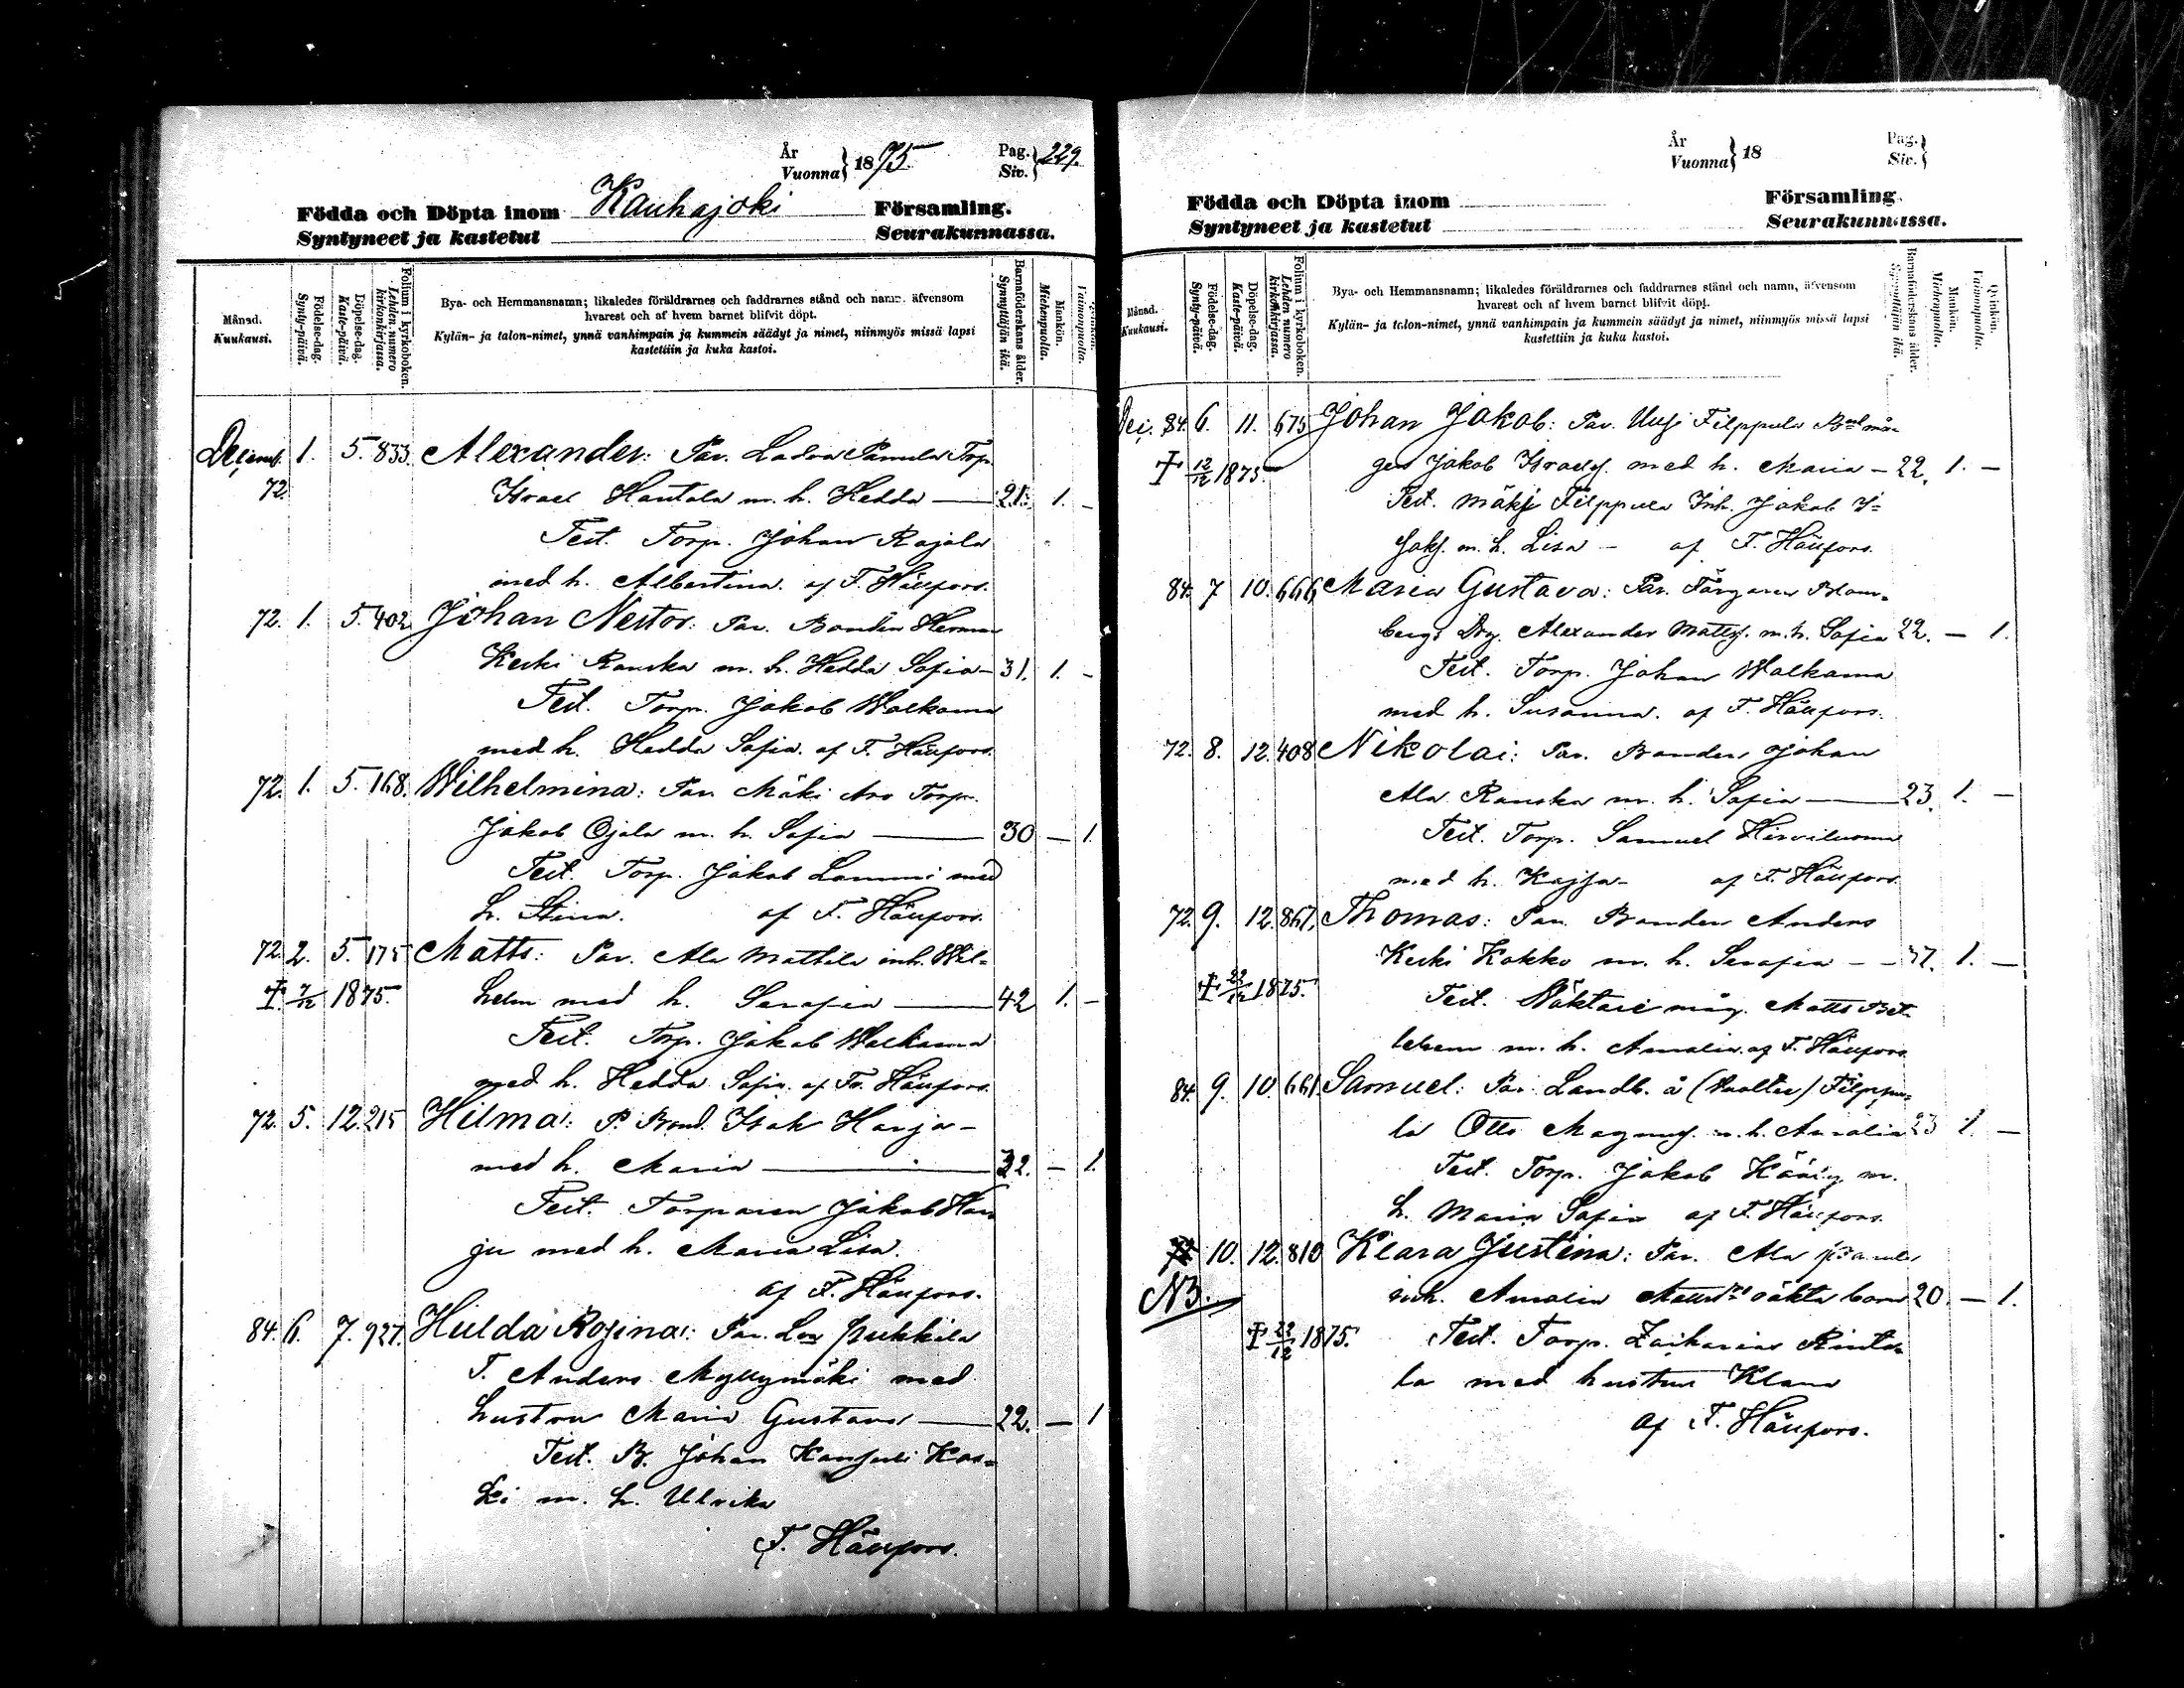 År
Vuonna } 1875.
Pag.
Siv. } 229.
Födda och Döpta inom Kauhajoki Församling.
Syntyneet ja kastetut Seurakunnassa.
Månad.
Kuukausi.
Födelse-dag.
Synty-päivä.
Döpelse-dag.
Kaste-päivä.
Folium i kyrkoboken.
Lehden numero kirkonkirjassa.
Bya- och Hemmansnamn; likaledes föräldrarnes och faddrarnes stånd och namn, äfvensom
hvarest och af hvem barnet blifvit döpt.
Kylän- ja talon-nimet, ynnä vanhimpain ja kummein säädyt ja nimet, niinmyös missä lapsi
kastettiin ja kuka kastoi.
Barnaföderskans ålder.
Synnyttäjän ikä.
Mankön.
Miehenpuolta.
Vaimonpuolta.
Decemb. 1. 5. 833. Alexander: Par. Ladva Pamula Torp.
72 Israel Hautala m. h. Hedda — 21. 1. -
Test. Torp. Johan Rajala
med h. Albertina. af F. Häufors.
72. 1. 5. 402. Johan Nestor: Par. Bonden Herman
Keski Ranska m. h. Hedda Sofia - 31. 1. -
Test. Torp. Jakob Walkama
med h. Hedda Sofia. af F. Häufors.
72. 1. 5. 168. Wilhelmina: Par. Mäki Aro Torp.
Jakob Ojala m. h. Sofia — 30 — 1.
Test. Torp. Jakob Lammi med
h. Stina. af F. Häufors.
72. 2. 5. 175 Matts: Par. Ala Mattila inh. Wil=
† 7/12 1875. helm med h. Serafia — 42 1. -
Test. Torp. Jakob Walkama
med h. Hedda Sofia. af F. Häufors.
72. 5. 12. 215 Hilma: P. Bond. Isak Harja -
med h. Maria — 32. — 1.
Test. Torparen Jakob Har
ju med h. Maria Lisa.
af F. Häufors.
84. 6. 7. 927. Hulda Rosina: Par. Lex pukkila
T. Anders Myllymäki med
hustru Maria Gustava — 22. — 1
Test. B. Johan Kos=
ki m. h. Ulrika
F. Häufors.
År
Vuonna } 18
Pag.
Siv. }
Födda och Döpta inom Församling.
Syntyneet ja kastetut Seurakunnassa.
Månad.
Kuukausi.
Födelse-dag.
Synty-päivä.
Döpelse-dag.
Kaste-päivä.
Folium i kyrkoboken.
Lehden numero kirkonkirjassa.
Bya- och Hemmansnamn; likaledes föräldrarnes och faddrarnes stånd och namn, äfvensom
hvarest och af hvem barnet blifvit döpt.
Kylän- ja talon-nimet, ynnä vanhimpain ja kummein säädyt ja nimet, niinmyös missä lapsi
kastettiin ja kuka kastoi.
Barnaföderskans ålder.
Synnyttäjän ikä.
Mankön.
Miehenpuolta.
Qvinkön.
Vaimonpuolta.
Dec. 84. 6. 11. 675 Johan Jakob: Par. Uusi Filppula
† 12/12 1875. gen Jakob Israelss. med h. Maria - 22. 1. -
Test. Mäki Filppula Inh. Jakob
Jaks. m. h. Lisa - af F. Häufors.
84. 7 10. 666 Maria Gustava: Par. Färgaren Blom=
bergs Drg. Alexander Mattss. m. h. Sofia 22. — 1.
Test. Torp. Johan Walkama
med h. Susanna. af F. Häufors.
72. 8. 12. 408 Nikolai: Par. Bonden Johan
Ala Ranska m. h. Sofia — 23. 1. —
Test. Torp. Samuel Hirviluoma
med h. Kajsa - af F. Häufors.
72. 9. 12. 867. Thomas: Par. Bonden Anders
Keski Kokko m. h. Serafia - - 37. 1. —
† 22/12 1875. Test. måg. Matts Bet
lehem m. h. Amalia. af F. Häufors.
84. 9. 10. 661. Samuel: Par. Landb. å Filppu=
la Otto Magnuss. m. h. Amalia 23 1. —
Test. Torp. Jakob m.
h. Maria Sofia af F. Häufors.
72 10. 12. 810 Klara Justina: Par. Ala pamula
NB. inh. Amalia oäkta barn 20. — 1.
† 22/12 1875. Test. Torp. Zacharias Rinta=
la med hustru Klara
af F. Häufors.